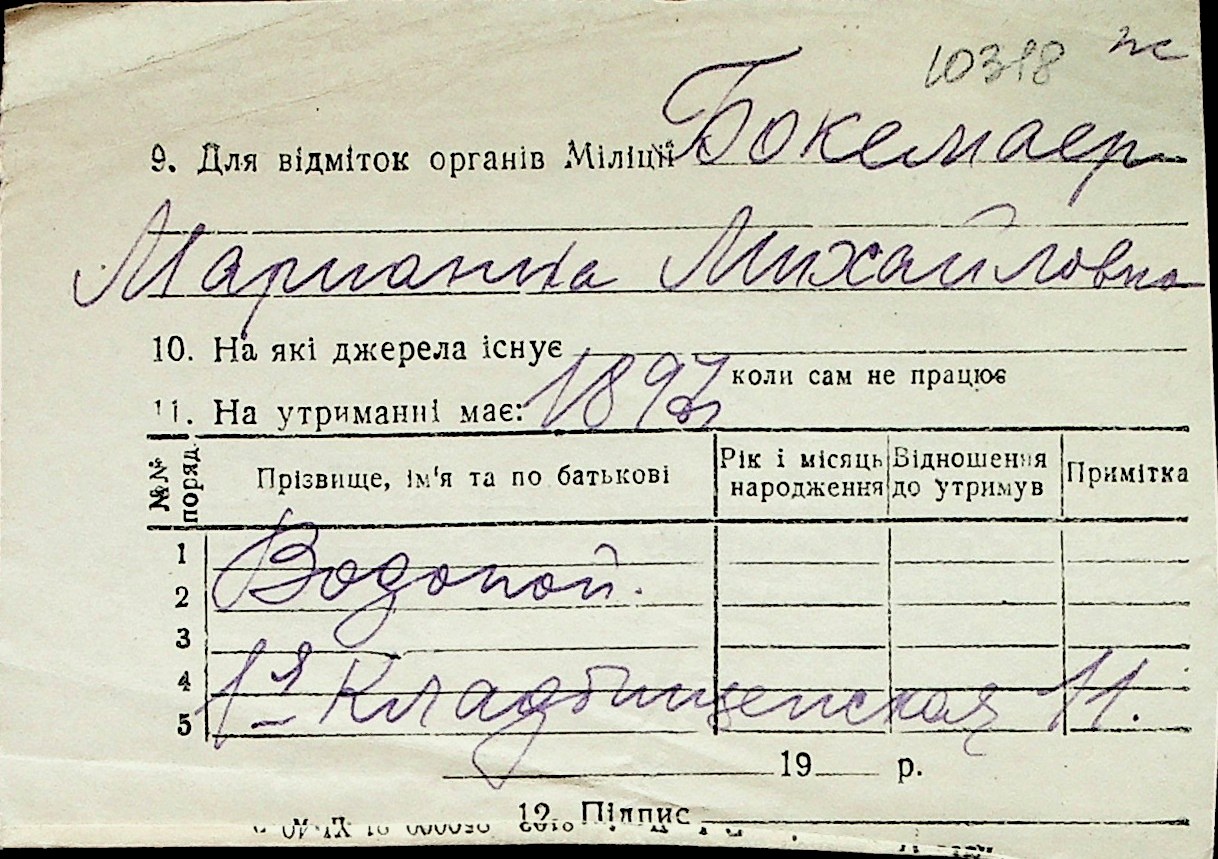 10318 ж
9. Для відміток органів Міліції Бокемаер
Марианна Михайловна
10. На які джерела існує
коли сам не працює
11. На утриманні має: 1897
№№ поряд. Прізвище, ім'я та по батькові Рік і місяць народження Відношення до утримув Примітка
1
2 Водопой.
3
4
5 1я Кладбищенская 11.
19 р.
12. Підпис